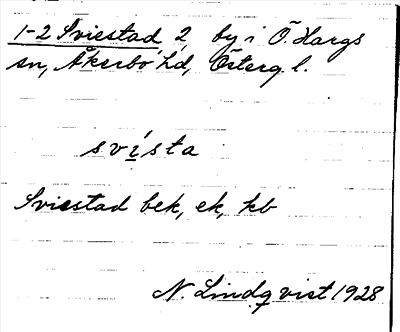 1-2 Sviestad 2 by i Ö. Hargs
sn, Åkerbo hd, Österg. l.
svista
Sviestad bek, ek, kb
N. Lindqvist 1928